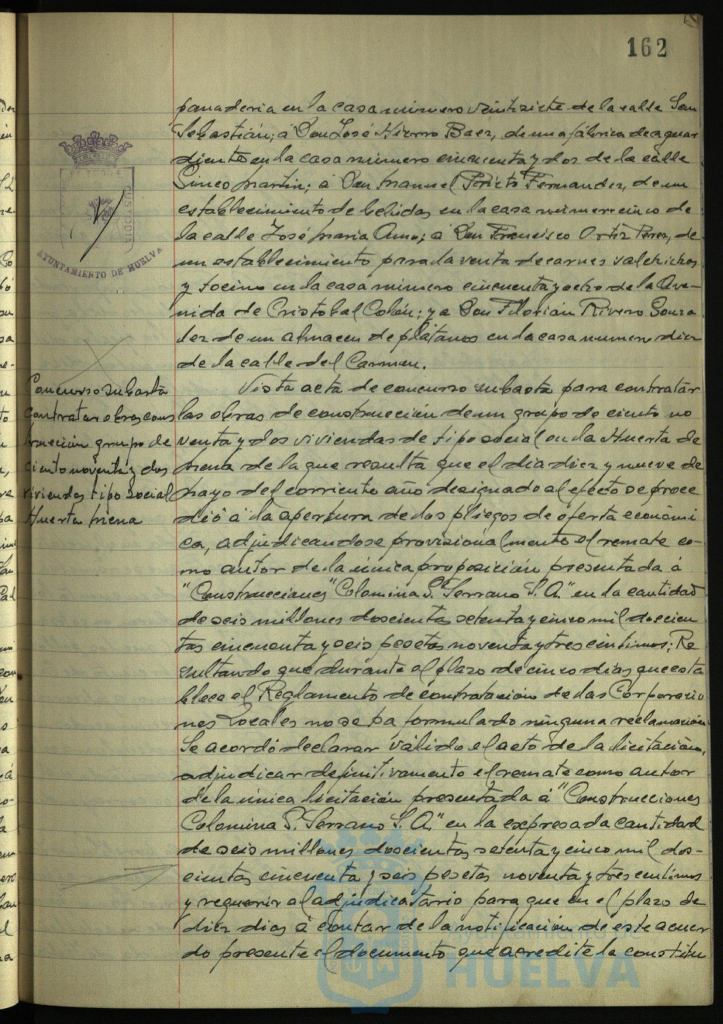 162
panaderia en la casa número veintisiete de la calle San
Sebastián; á Don José Hierro Baez, de una fábrica de aguar
diente en la casa número cincuenta y dos de la calle
Cinco Martin; á Don Manuel Prieto Fernandez, de un
establecimiento de bebidas en la casa número cinco de
la calle José Maria Amo; a Don Francisco Ortiz Perez, de
un establecimiento para la venta de carnes salchichas
y tocino en la casa número cincuenta y ocho de la Ave
nida de Cristobal Colón; y a Don Florián Rivero Gonza
lez de un almacen de plátanos en la casa número diez
de la calle del Carmen.
AYUNTAMIENTO DE HUELVA
Concurso subasta
contratar obras cons
trucción grupo de
ciento noventa y dos
viviendas tipo social
Huerta Mena
Vista acta de concurso subasta para contratar
las obras de construcción de un grupo de ciento no
venta y dos viviendas de tipo social en la Huerta de
Mena de la que resulta que el dia diez y nueve de
Mayo del corriente año designado al efecto se proce
dió á la apertura de los pliegos de oferta económi
ca, adjudicandose provisionalmente el remate co
mo autor de la única proposición presentada á
"Construcciones Colomina G. Serrano S.A." en la cantidad
de seis millones doscientas setenta y cinco mil doscien
tas cincuenta y seis pesetas noventa y tres centimos; Re
sultando que durante el plazo de cinco dias que esta
blece el Reglamento de contratación de las Corporacio
nes Locales no se ha formulado ninguna reclamación
Se acordó declarar válido el acto de la licitación,
adjudicar definitivamente el remate como autor
de la única licitación presentada á "Construcciones
Colomina G. Serrano S.A." en la expresada cantidad
de seis millones doscientas setenta y cinco mil dos-
cientas cincuenta y seis pesetas noventa y tres centimos
y requerir al adjudicatario para que en el plazo de
diez dias á contar de la notificación de este acuer
do presente el documento que acredite la constitu
HUELVA